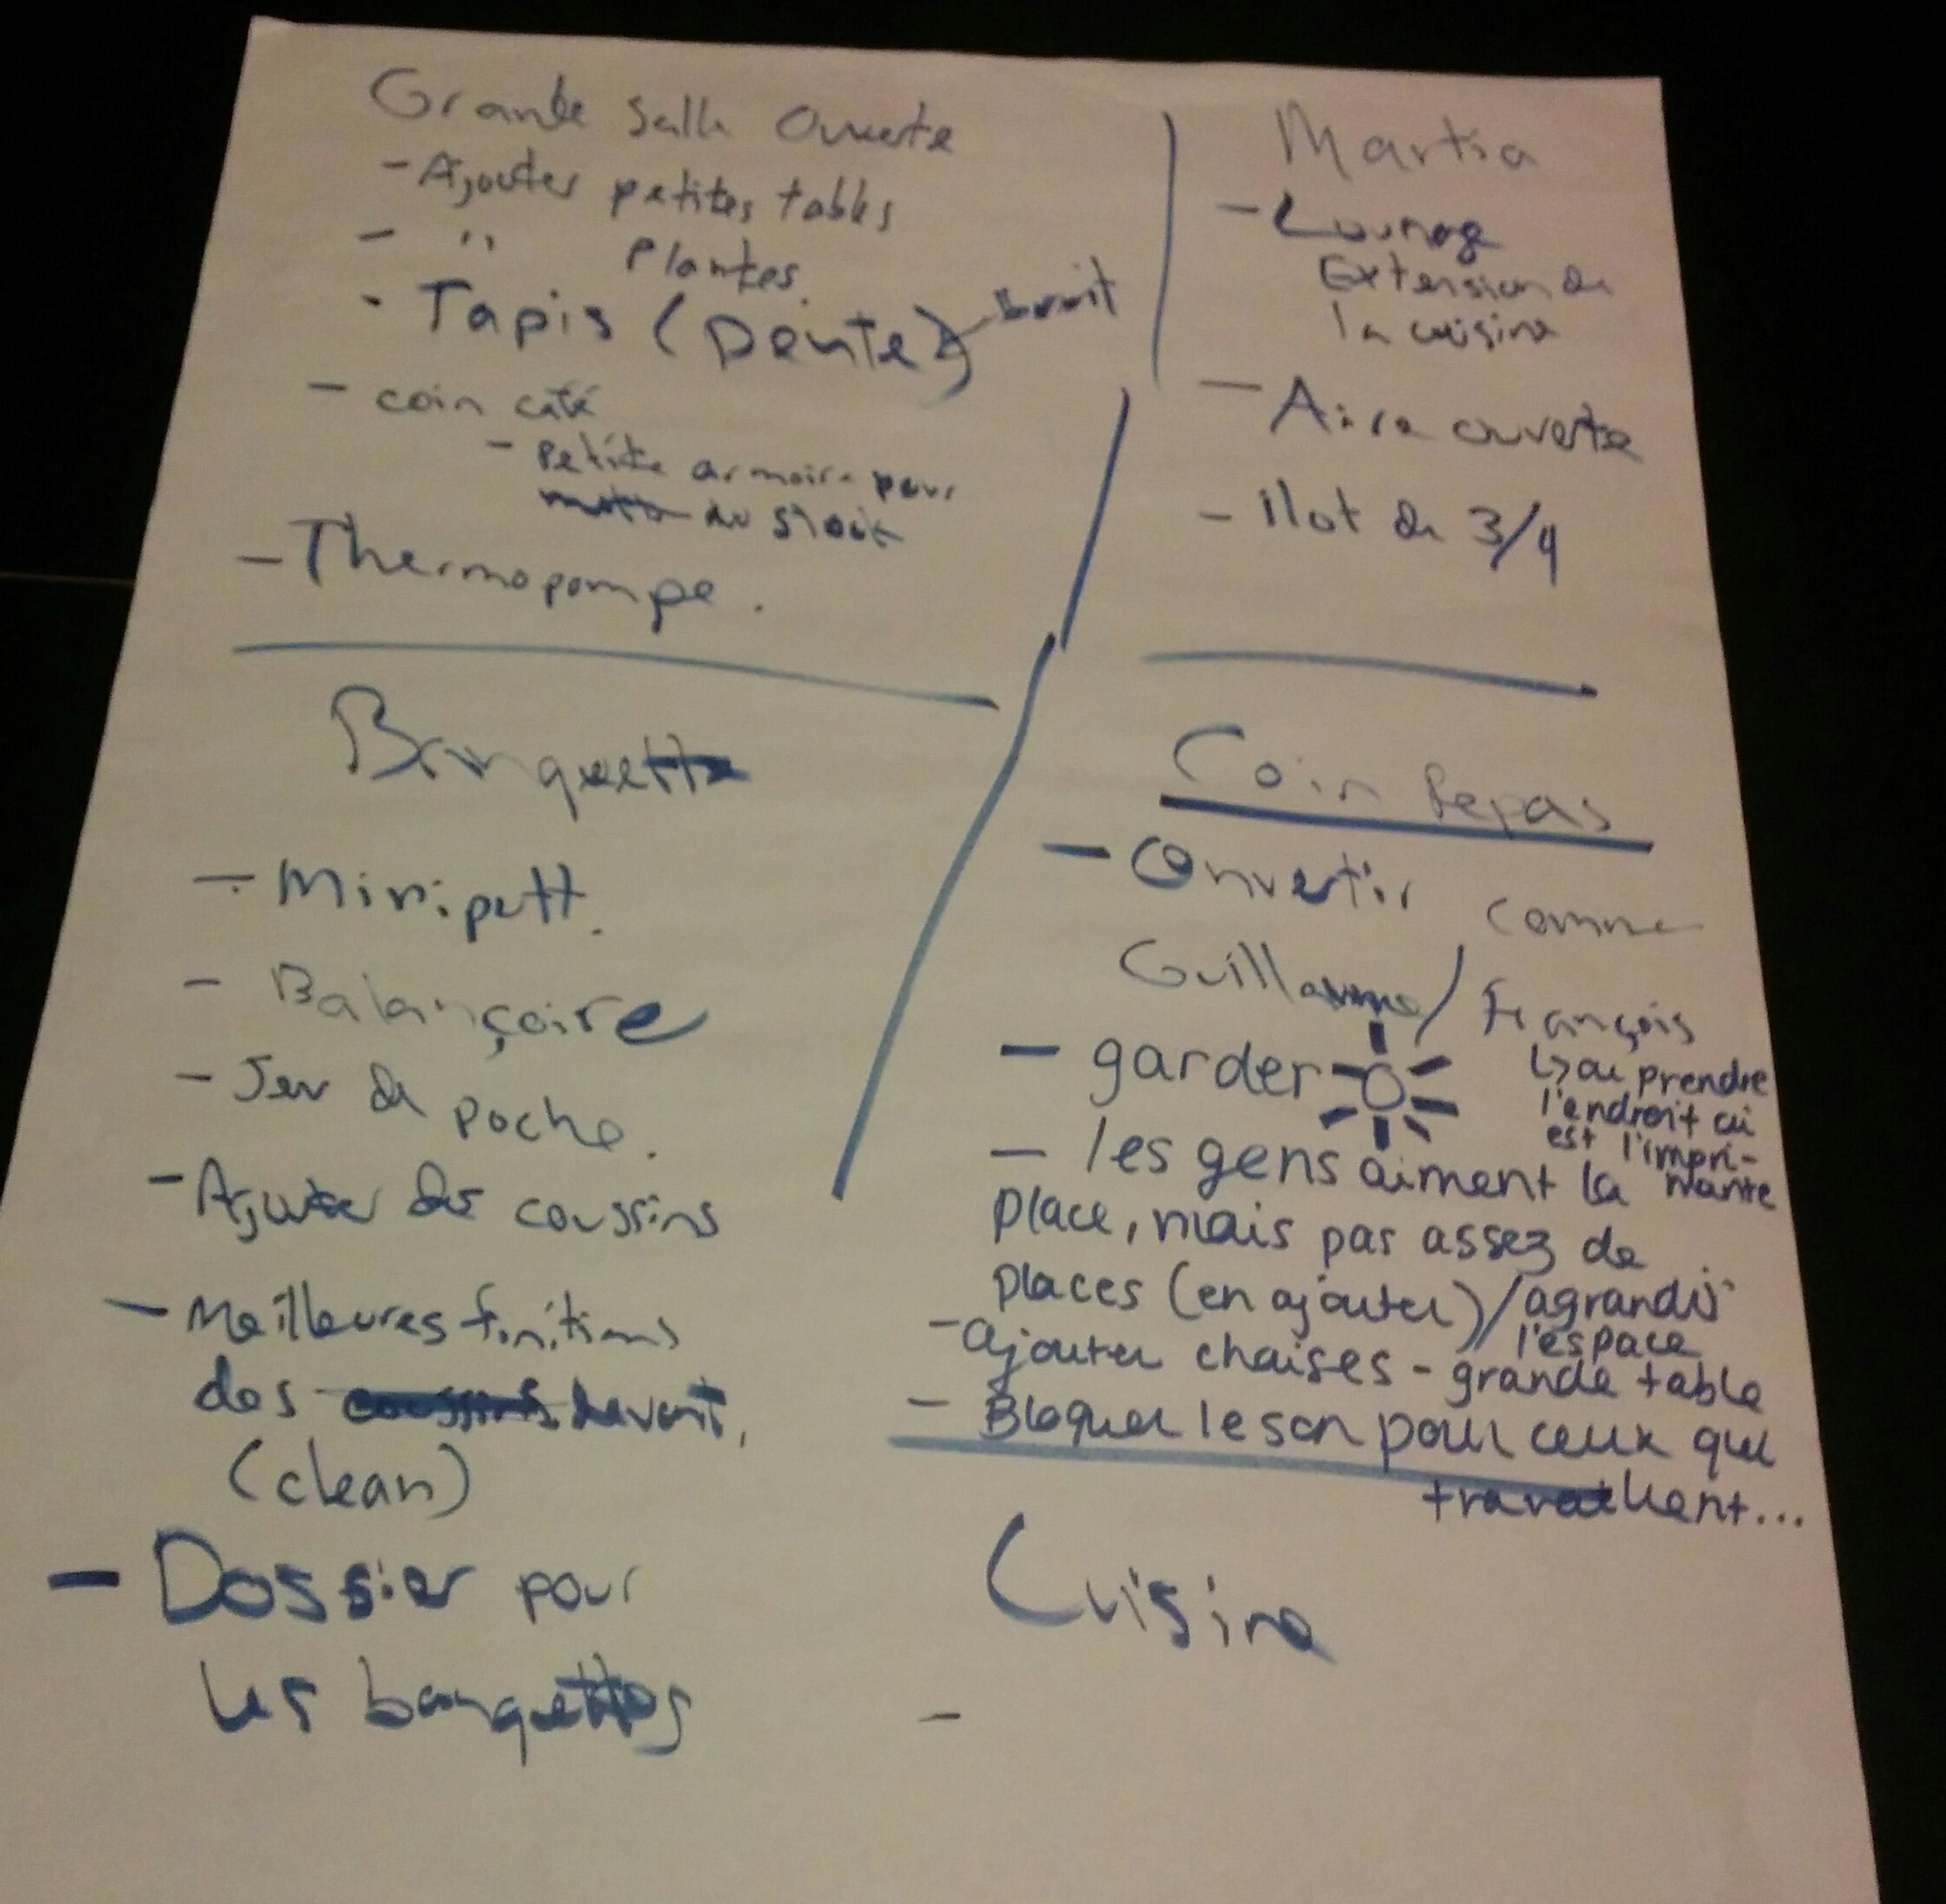 Grande Salle Ouverte
- Ajouter petites tables
- " Plantes.
- Tapis (Pente) bruit
- coin café
- Petite armoire pour
du stock
- Thermopompe.
Banquette
- Miniputt.
- Balançoire
- Jeu de poche.
- Ajouter des coussins
- Meilleures finitions
des devant,
(clean)
- Dossier pour
les banquettes
Martia
- Lounge
Extension de
la cuisine
- Aire ouverte
- ilot de 3/4
Coin Repas
- Convertir comme
Guillaume / François
↳ ou prendre
l'endroit où
est l'impri-
mante
- garder
- les gens aiment la
place, mais pas assez de
places (en ajouter) / agrandir
l'espace
- ajouter chaises - grande table
- Bloquer le son pour ceux qui
travaillent...
Cuisine
-